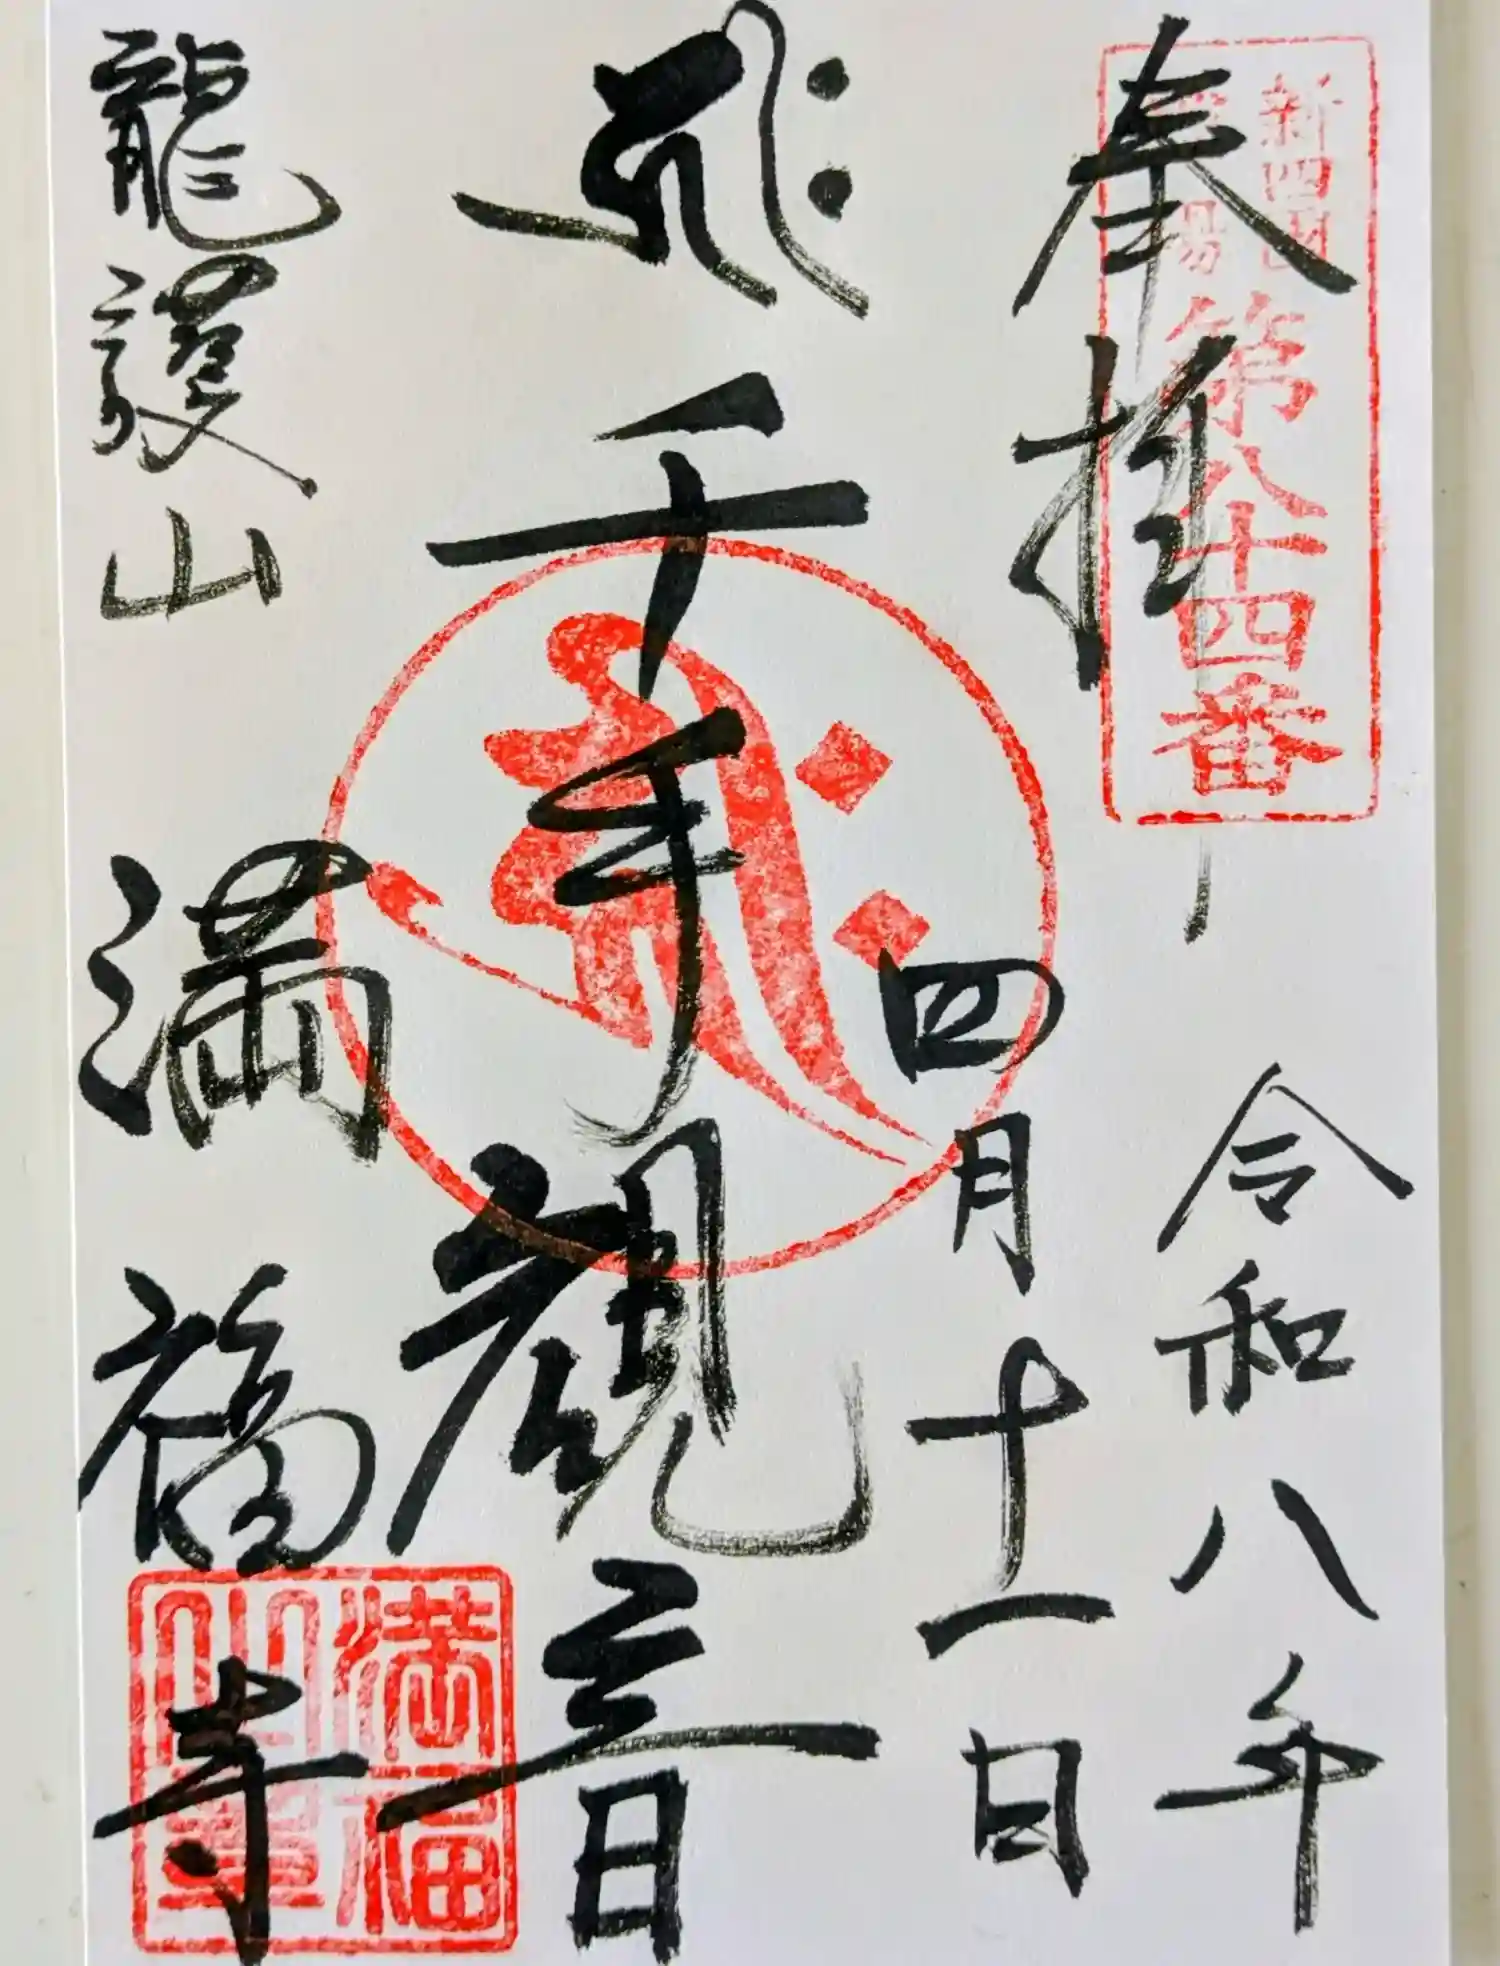 奉拝
新四国
霊場
第八十四番
令和八年
四月十一日
千手観音
龍護山
満福寺
満福
山寺